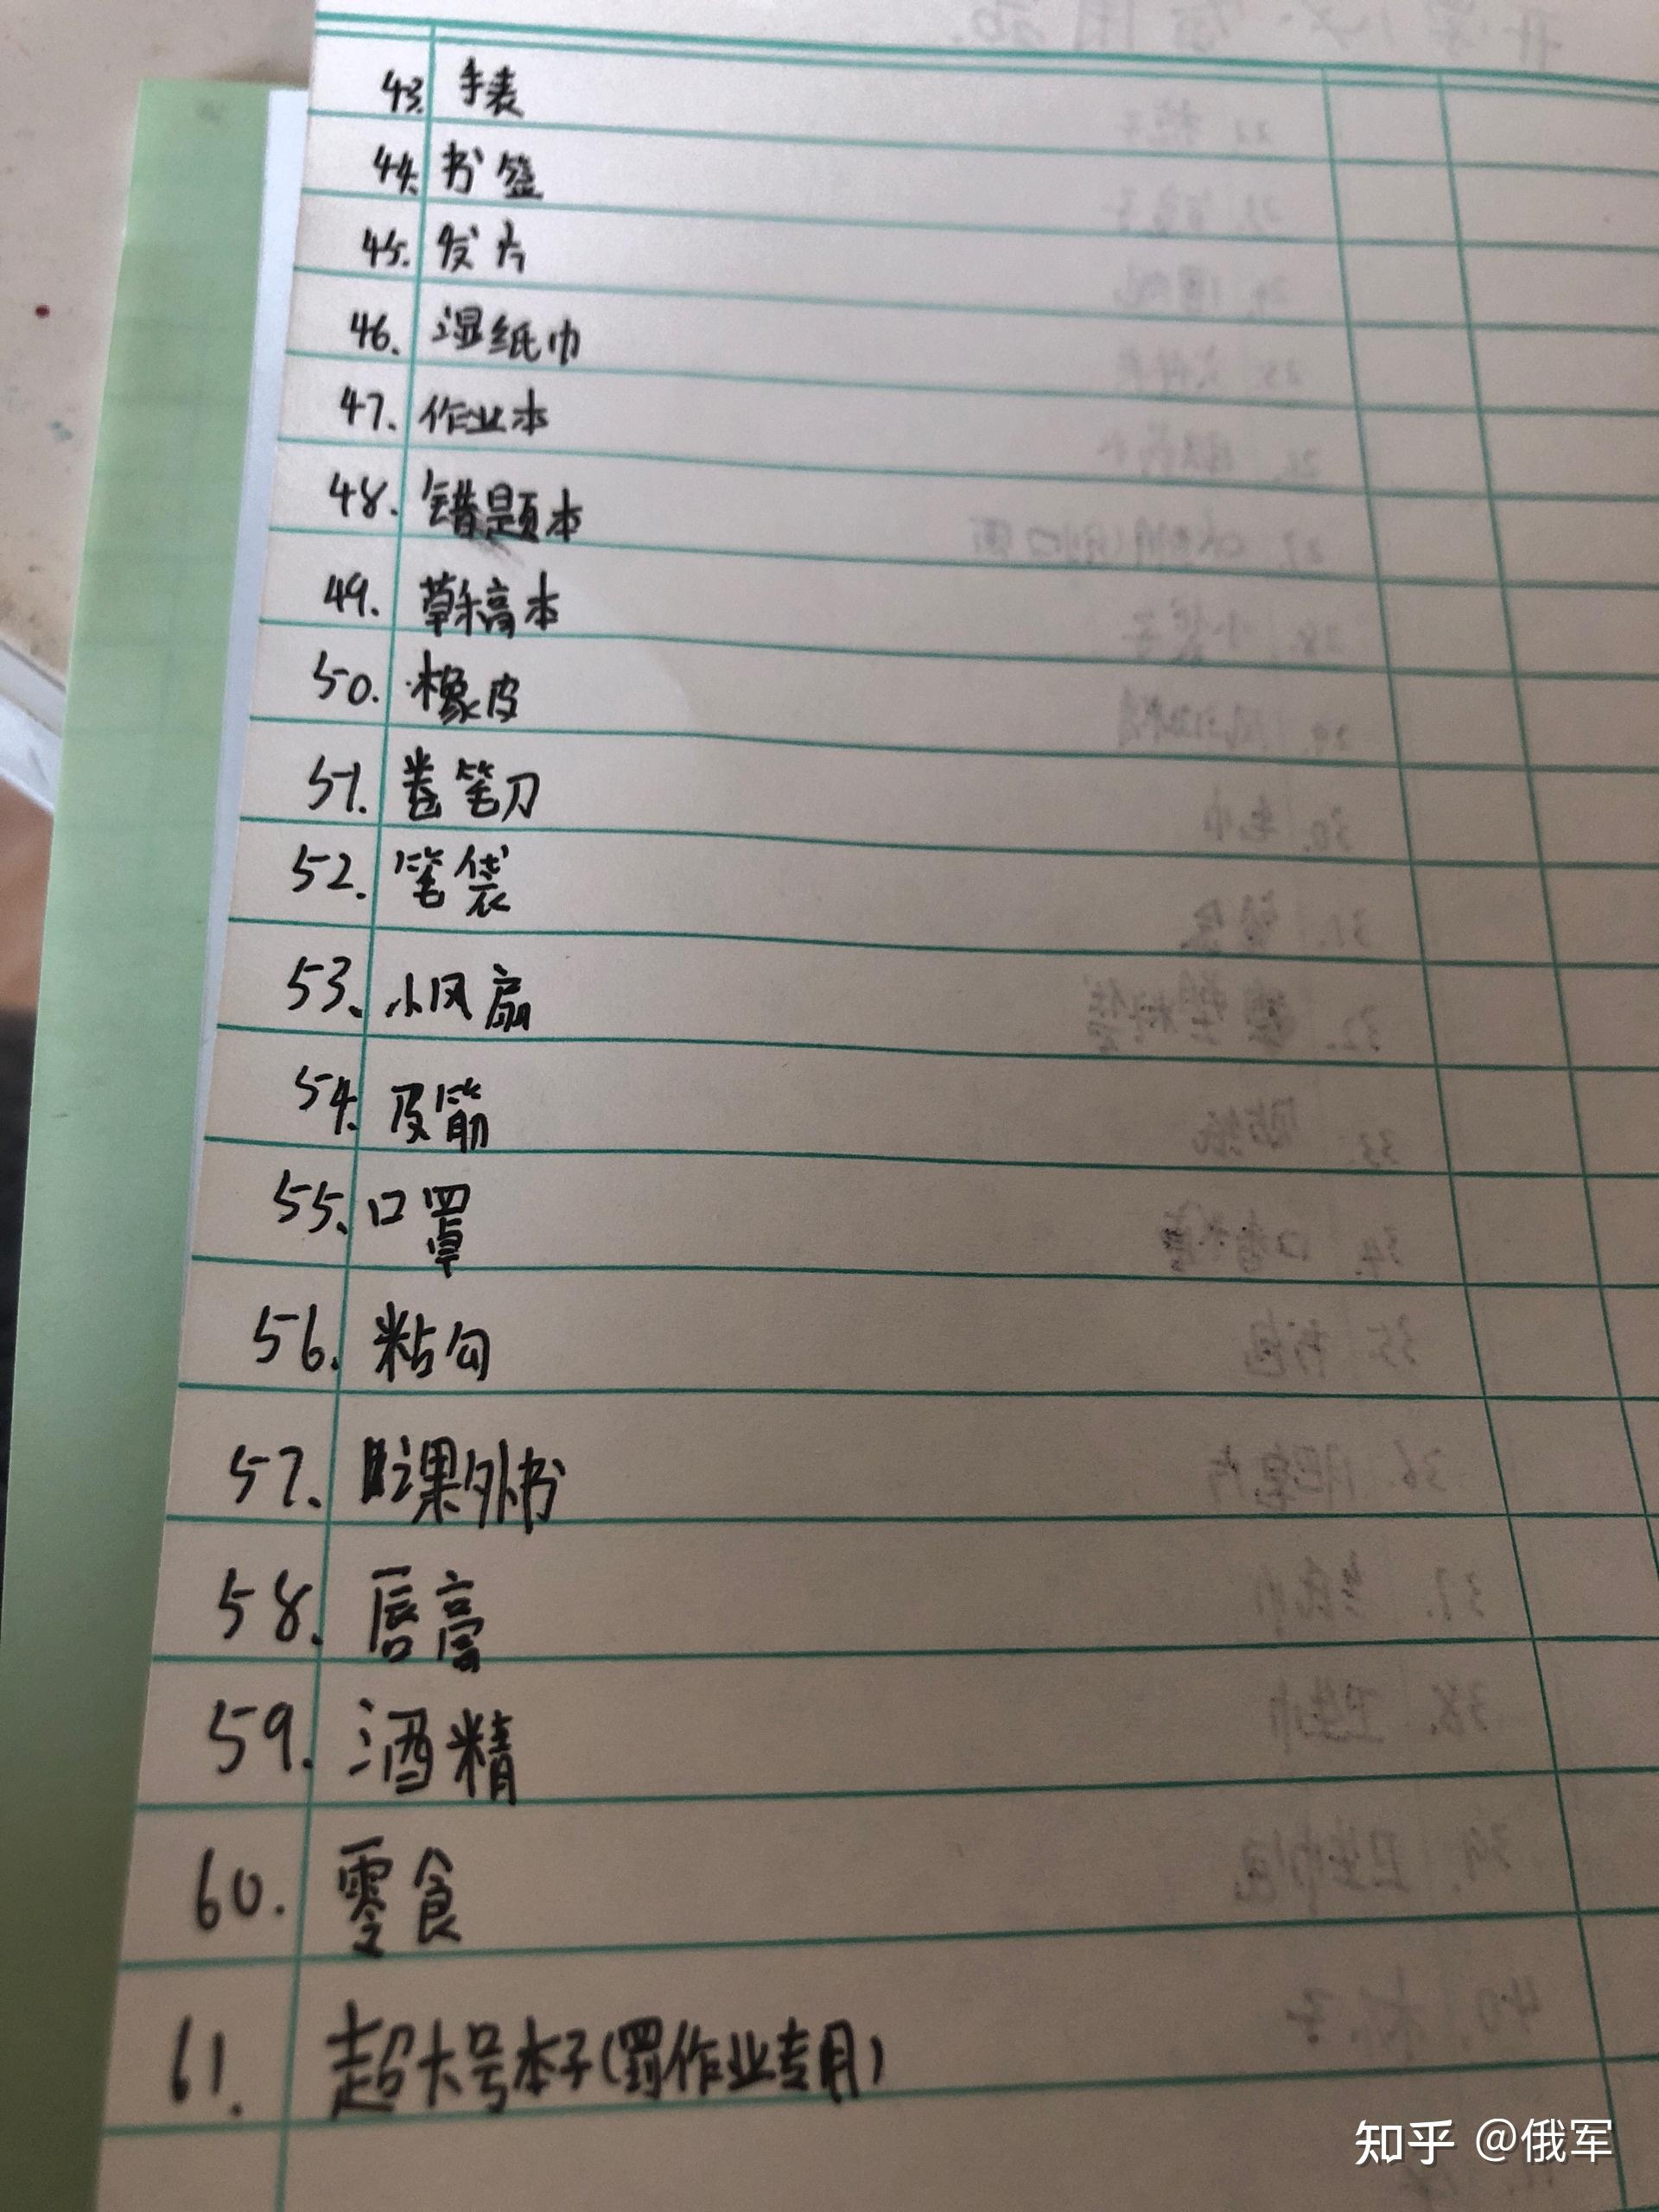 43. 手表
44. 书签
45. 发卡
46. 湿纸巾
47. 作业本
48. 错题本
49. 草稿本
50. 橡皮
51. 卷笔刀
52. 笔袋
53. 小风扇
54. 皮筋
55. 口罩
56. 粘勾
57. 课外书
58. 唇膏
59. 酒精
60. 零食
61. 超大号本子(写作业专用)
知乎 @俄军